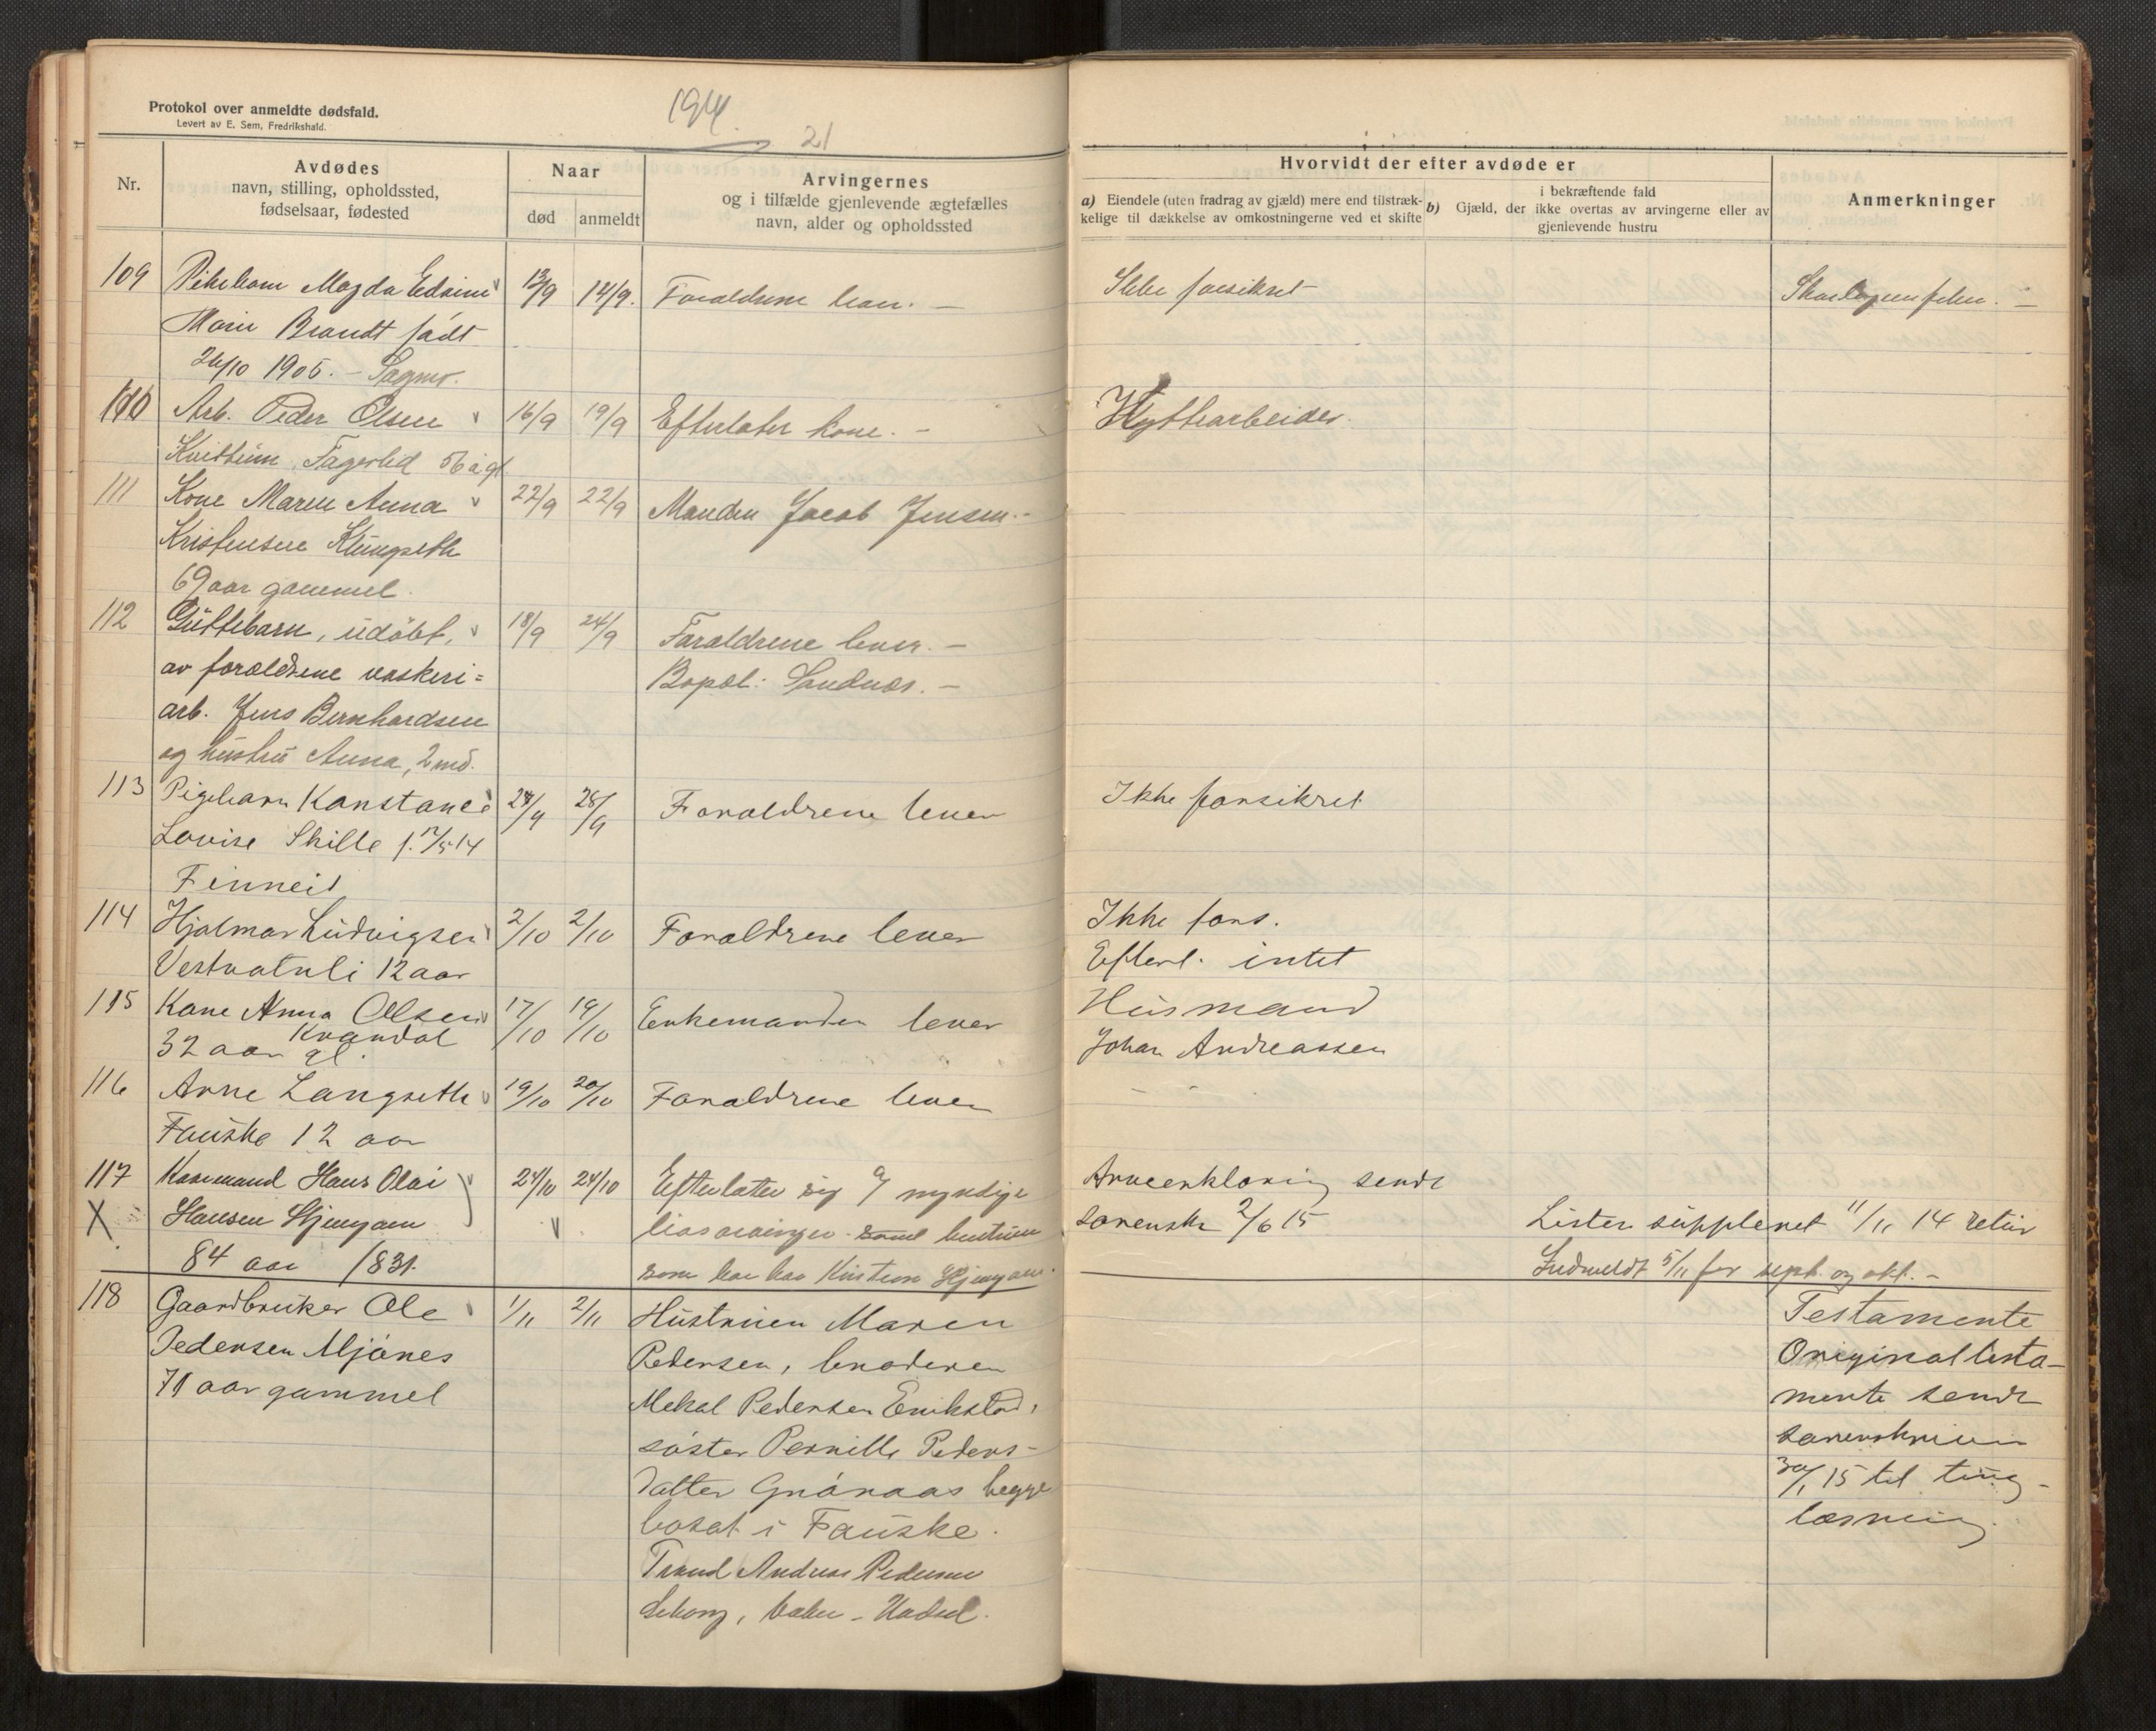 Protokol over anmeldte dødsfald.
Levert av E. Sem, Fredrikshald.
1914.
21
Nr.
Avdødes
navn, stilling, opholdssted,
fødselsaar, fødested
Naar
død
anmeldt
Arvingernes
og i tilfælde gjenlevende ægtefælles
navn, alder og opholdssted
Hvorvidt der efter avdøde er
a) Eiendele (uten fradrag av gjæld) mere end tilstræk-
kelige til dækkelse av omkostningerne ved et skifte
b) Gjæld, der
i bekræftende fald
ikke overtas av arvingerne eller av
gjenlevende hustru
Anmerkninger
109 Pikebarn Magda Edvine 13/9 14/9. Forældrene lever. — Ikke forsikret
Marie Brandt født
24/10 1905. —
110 Arb. Peder Olsen 16/9 19/9 Efterlater kone. – Hyttearbeider.
Fagerlid 56 a gl
111 Kone Maren Anna 22/9 22/9 Manden Jacob Jensen. –
Kristensen Klungseth
69 aar gammel.
112 Guttebarn, udøbt, 18/9 24/9 Forældrene lever. –
av forældrene vaskeri= Bopæl: Sandnes. –
arb. Jens Bernhardsen
og hustru Anna, 2 md.
113 Pigebarn Konstance 24/9 28/9 Forældrene lever Ikke forsikret
Lovise Skille f. 17/5 14
Finneid
114 Hjalmar Ludvigsen 2/10 2/10 Forældrene lever Ikke fors.
Vestvatnli 12 aar Efterl. intet
115 Kone Anna Olsen 17/10 19/10 Enkemanden lever Husmand
Kvandal
32 aar gl. Johan Andreassen
116 Arne Langseth 19/10 20/10 Forældrene lever
Fauske 12 aar
117 Kaarmand Hans Olai 24/10 24/10 Efterlater sig 9 myndige Arveerklæring sendt
X Hansen livsarvinger samt hustruen sorensk 2/6 15 Listen supplenet 11/11 14 retur
84 aar 1831. som Indmeldt 5/11 for sept. og okt. –
118 Gaardbruker Ole 1/11 2/11 Hustruen Maren Testamente
Pedersen Mjønes Pedersen, broderen Original testa-
71 aar gammel Mekal Pedersen Erikstad, mente sendt
søster Pernille Peders- sorenskriveren
datter Grønaas begge 30/1 15 til ting-
bosat i Fauske. læsning.
Trond Andreas Pedersen